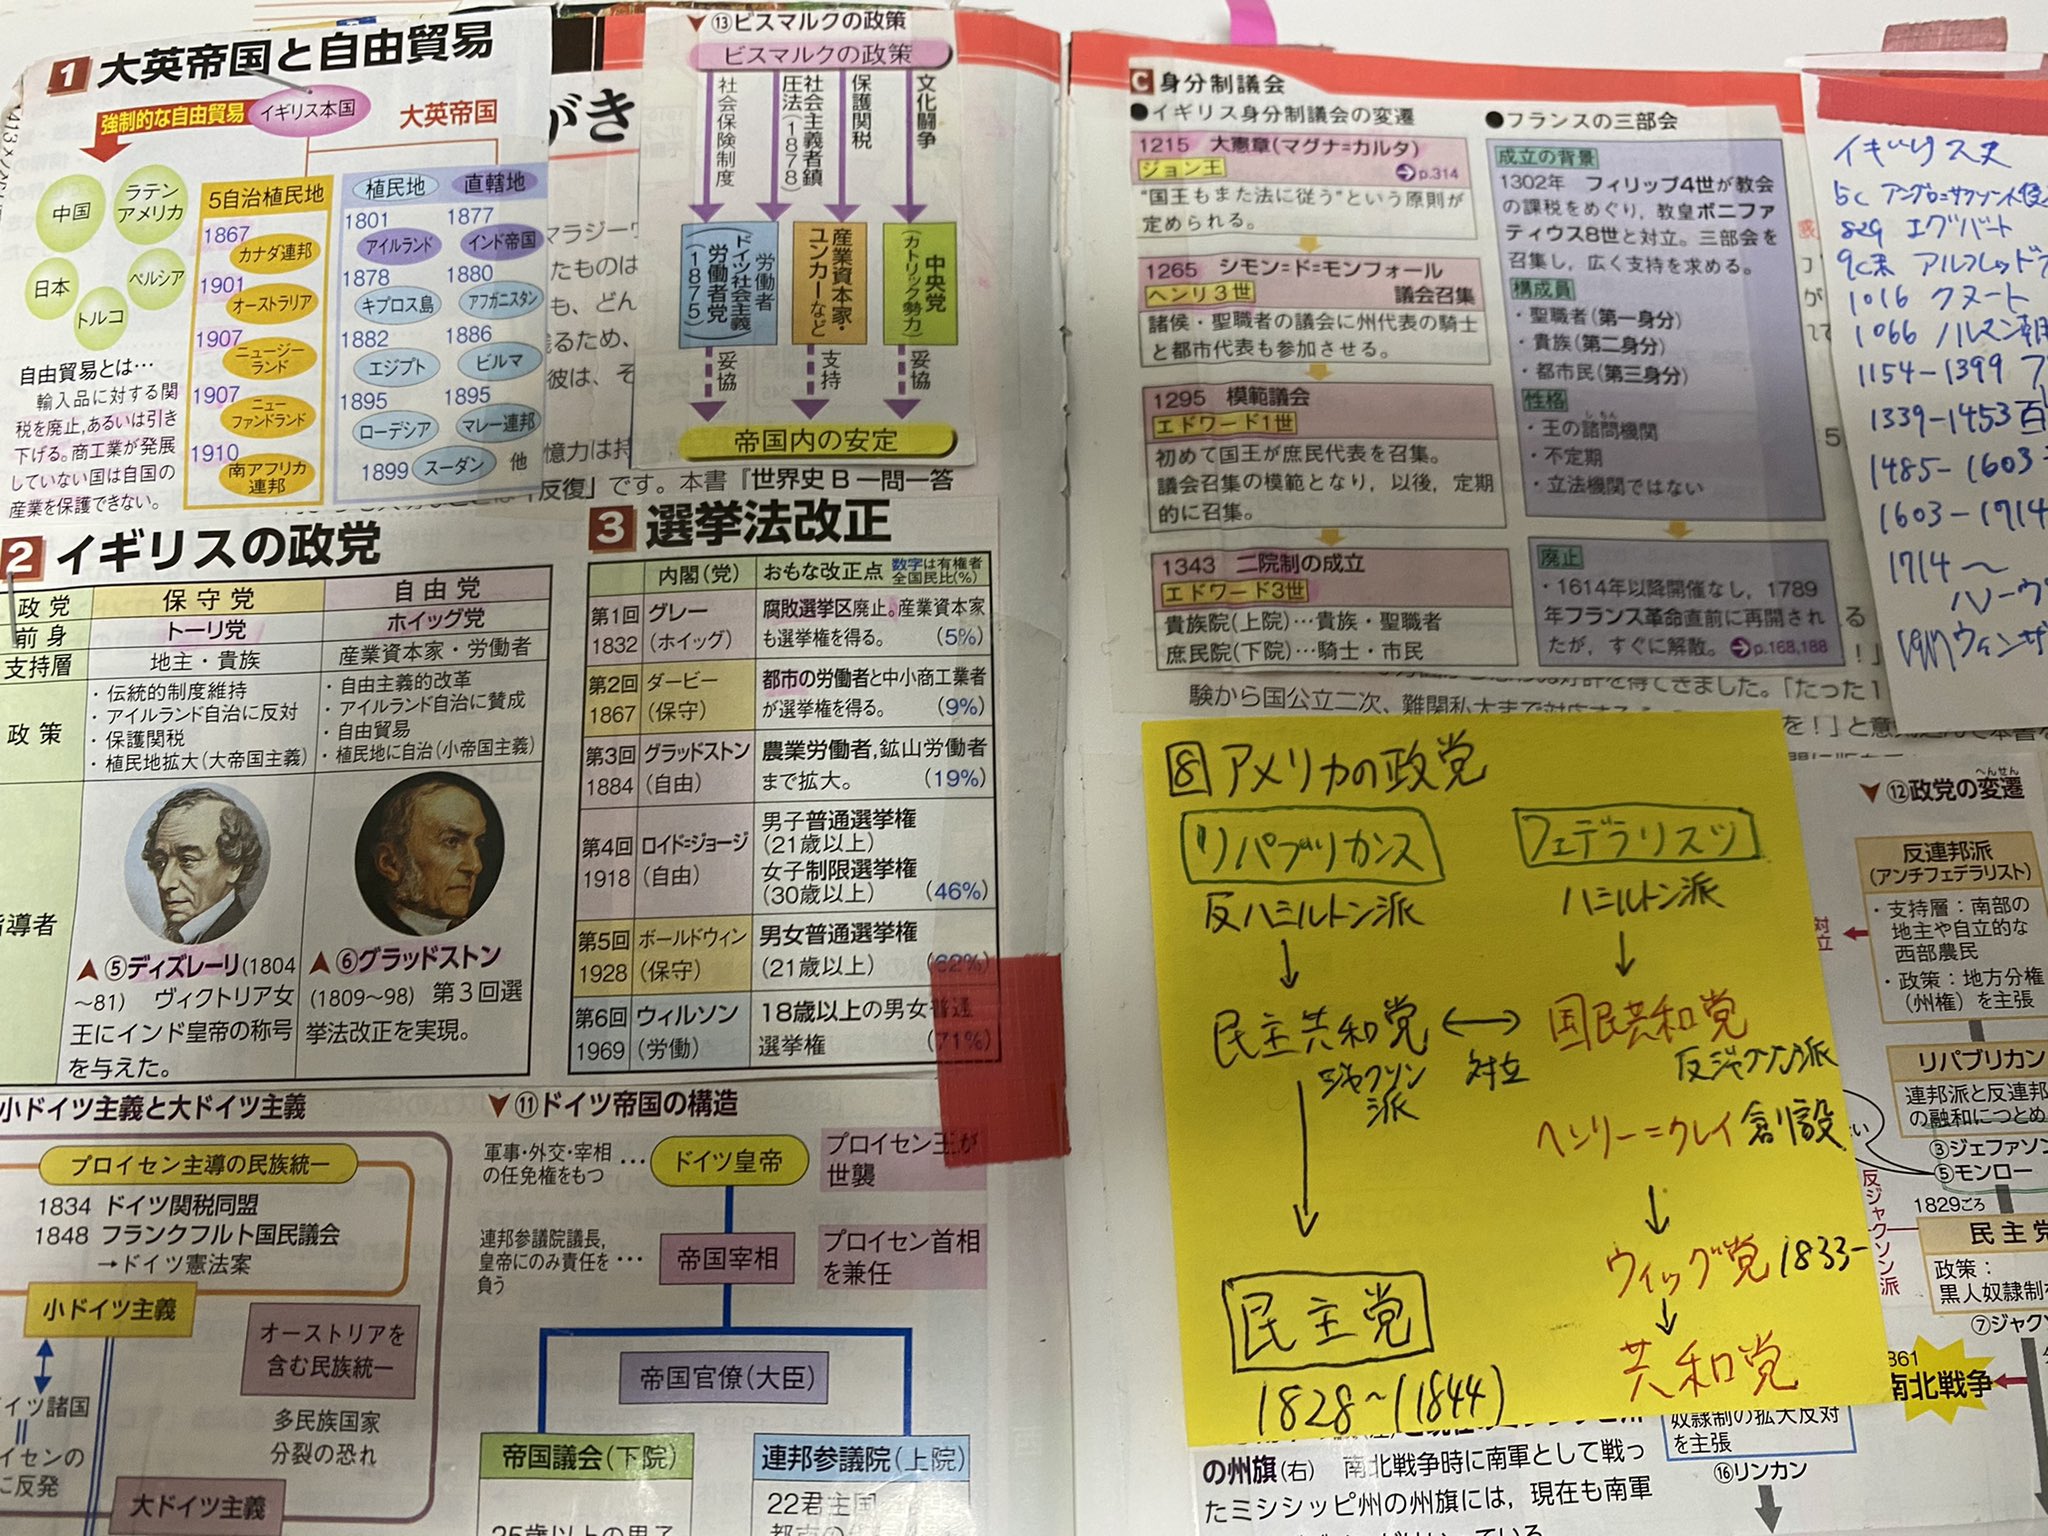 1 大英帝国と自由貿易
強制的な自由貿易
イギリス本国
大英帝国
中国
ラテンアメリカ
日本
ペルシア
トルコ
5自治植民地
1867
カナダ連邦
1901
オーストラリア
1907
ニュージーランド
1907
ニューファンドランド
1910
南アフリカ連邦
植民地 直轄地
1801 1877
アイルランド インド帝国
1878 1880
キプロス島 アフガニスタン
1882 1886
エジプト ビルマ
1895 1895
ローデシア マレー連邦
1899 スーダン 他
自由貿易とは…
輸入品に対する関
税を廃止,あるいは引き
下げる。商工業が発展
していない国は自国の
産業を保護できない。
がき
マラジー
たものは
も、どん
るため、
彼は、そ
憶力は持
反復」です。本書『世界史B一問一答
▼⑬ビスマルクの政策
ビスマルクの政策
社会保険制度
社会主義者鎮圧法(1878)
保護関税
文化闘争
労働者
ドイツ社会主義労働者党(1875)
産業資本家・ユンカーなど
中央党
(カトリック勢力)
妥協
支持
妥協
帝国内の安定
2 イギリスの政党
政党 保守党 自由党
前身 トーリ党 ホイッグ党
支持層 地主・貴族 産業資本家・労働者
政策
・伝統的制度維持
・アイルランド自治に反対
・保護関税
・植民地拡大(大帝国主義)
・自由主義的改革
・アイルランド自治に賛成
・自由貿易
・植民地に自治(小帝国主義)
指導者
▲⑤ディズレーリ(1804
～81) ヴィクトリア女
王にインド皇帝の称号
を与えた。
▲⑥グラッドストン
(1809～98) 第3回選
挙法改正を実現。
3 選挙法改正
内閣(党) おもな改正点 数字は有権者全国民比(%)
第1回 グレー 腐敗選挙区廃止。産業資本家
1832 (ホイッグ) も選挙権を得る。 (5%)
第2回 ダービー 都市の労働者と中小商工業者
1867 (保守) が選挙権を得る。 (9%)
第3回 グラッドストン 農業労働者,鉱山労働者
1884 (自由) まで拡大。 (19%)
第4回 ロイド=ジョージ 男子普通選挙権
(21歳以上)
1918 (自由) 女子制限選挙権
(30歳以上) (46%)
第5回 ボールドウィン 男女普通選挙権
1928 (保守) (21歳以上) (62%)
第6回 ウィルソン 18歳以上の男女普通
1969 (労働) 選挙権 (71%)
小ドイツ主義と大ドイツ主義
プロイセン主導の民族統一
1834 ドイツ関税同盟
1848 フランクフルト国民議会
→ドイツ憲法案
小ドイツ主義
オーストリアを
含む民族統一
イツ諸国
イセンの
に反発
多民族国家
分裂の恐れ
大ドイツ主義
▼⑪ドイツ帝国の構造
軍事・外交・宰相
の任免権をもつ
…
ドイツ皇帝
プロイセン王が
世襲
連邦参議院議長,
皇帝にのみ責任を
負う
…
帝国宰相
プロイセン首相
を兼任
帝国官僚(大臣)
帝国議会(下院)
25歳以上の男子
連邦参議院(上院)
22君主国
C 身分制議会
●イギリス身分制議会の変遷
1215 大憲章(マグナ=カルタ)
ジョン王 p.314
“国王もまた法に従う”という原則が
定められる。
1265 シモン=ド=モンフォール
ヘンリ3世 議会召集
諸侯・聖職者の議会に州代表の騎士
と都市代表も参加させる。
1295 模範議会
エドワード1世
初めて国王が庶民代表を召集。
議会召集の模範となり，以後，定期
的に召集。
1343 二院制の成立
エドワード3世
貴族院(上院)…貴族・聖職者
庶民院(下院)…騎士・市民
●フランスの三部会
成立の背景
1302年 フィリップ4世が教会
の課税をめぐり，教皇ボニファ
ティウス8世と対立。三部会を
召集し，広く支持を求める。
構成員
・聖職者(第一身分)
・貴族(第二身分)
・都市民(第三身分)
性格
・王の諮問機関
・不定期
・立法機関ではない
廃止
・1614年以降開催なし，1789
年フランス革命直前に再開され
たが，すぐに解散。 p.168,188
イギリス史
5c アングロ=サクソン人侵
829 エグバート
9c末 アルフレッド
1016 クヌート
1066 ノルマン朝
1154-1399 プ
1339-1453 百
1485-1603
1603-1714
1714～
ハノーヴ
1917 ウィンザ
験から国公立二次、難関私大まで対応する
好評を得てきました。「たった1
を！」と意
8 アメリカの政党
リパブリカンス
フェデラリスツ
反ハミルトン派
ハミルトン派
民主共和党
国民共和党
ジャクソン派
対立
反ジャクソン派
ヘンリー=クレイ創設
ウィッグ党 1833-
民主党
共和党
1828～(1844)
▼⑫政党の変遷
へんせん
反連邦派
(アンチフェデラリスト)
・支持層：南部の
地主や自立的な
西部農民
・政策：地方分権
(州権)を主張
対立
リパブリカン
連邦派と反連邦
の融和につとめ
③ジェファソン
⑤モンロー
反ジャクソン派
1829ごろ
民主党
政策：
黒人奴隷制
⑦ジャクソ
861
南北戦争
奴隷制の拡大反対
を主張
⑯リンカン
の州旗(右) 南北戦争時に南軍として戦っ
たミシシッピ州の州旗には，現在も南軍